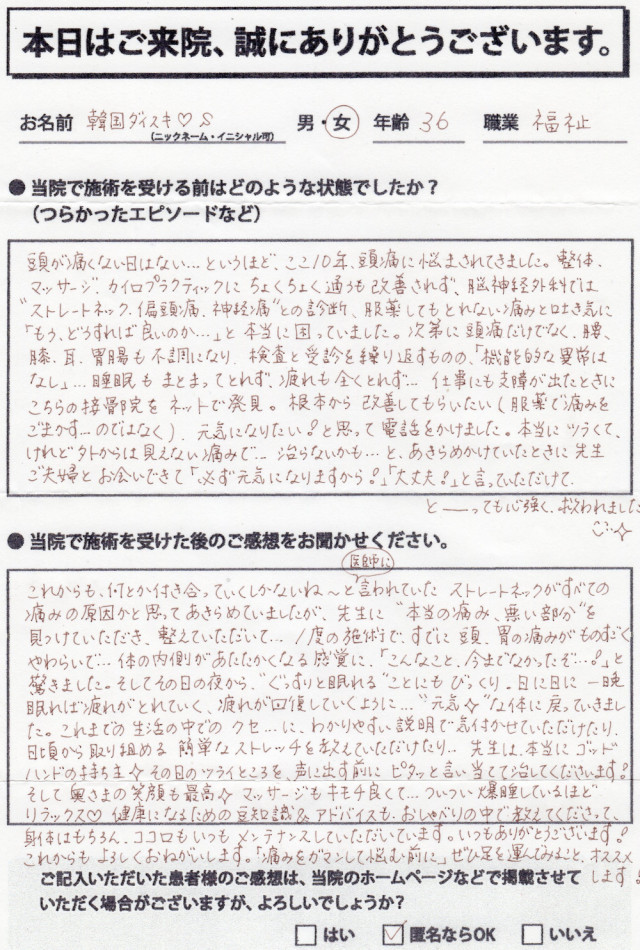 本日はご来院、誠にありがとうございます。
お名前 韓国ダイスキ♡S (ニックネーム・イニシャル可) 男・女 年齢 36 職業 福祉
● 当院で施術を受ける前はどのような状態でしたか？
（つらかったエピソードなど）
頭が痛くない日はない…というほど、ここ10年、頭痛に悩まされてきました。整体、
マッサージ、カイロプラクティックにちょくちょく通うも改善されず、脳神経外科では
“ストレートネック、偏頭痛、神経痛”との診断、服薬してもとれない痛みと吐き気に
「もう、どうすれば良いのか…」と本当に困っていました。次第に頭痛だけでなく、腰、
膝、耳、胃腸も不調になり、検査と受診を繰り返すものの、「機能的な異常は
なし」…睡眠もまとまってとれず、疲れも全くとれず…仕事にも支障が出たときに
こちらの接骨院をネットで発見。根本から改善してもらいたい(服薬で痛みを
ごまかす…のではなく)、元気になりたい！と思って電話をかけました。本当にツラくて、
けれど外からは見えない痛みで…治らないかも…と、あきらめかけていたときに先生
ご夫婦とお会いできて「必ず元気になりますから！」「大丈夫！」と言っていただけて、
とーーっても心強く、救われました
● 当院で施術を受けた後のご感想をお聞かせください。
医師に
これからも、何とか付き合っていくしかないね～と言われていたストレートネックがすべての
痛みの原因かと思ってあきらめていましたが、先生に“本当の痛み、悪い部分”を
見つけていただき、整えていただいて…1度の施術で、すでに頭、胃の痛みがものすごく
やわらいで…体の内側があたたかくなる感覚に、「こんなこと、今までなかったぞ…！」と
驚きました。そしてその日の夜から、“ぐっすりと眠れる”ことにもびっくり。日に日に一晩
眠れば疲れがとれていく、疲れが回復していくように…“元気✧”な体に戻っていきまし
た。これまでの生活の中でのクセ…に、わかりやすい説明で気付かせていただけたり、
日頃から取り組める簡単なストレッチを教えていただけたり…先生は、本当にゴッド
ハンドの持ち主✧その日のツライところを、声に出す前にピタッと言い当てて治してくださいます！
そして奥さまの笑顔も最高✧マッサージもキモチ良くて…ついつい爆睡しているほど
リラックス♡健康になるための豆知識&アドバイスも、おしゃべりの中で教えてくださって、
身体はもちろん、ココロもいつもメンテナンスしていただいています。いつもありがとうございます！
これからもよろしくおねがいします。「痛みをガマンして悩む前に」ぜひ足を運んでみること、オススメ
します！
ご記入いただいた患者様のご感想は、当院のホームページなどで掲載させて
いただく場合がございますが、よろしいでしょうか？
□ はい ☑ 匿名ならOK □ いいえ